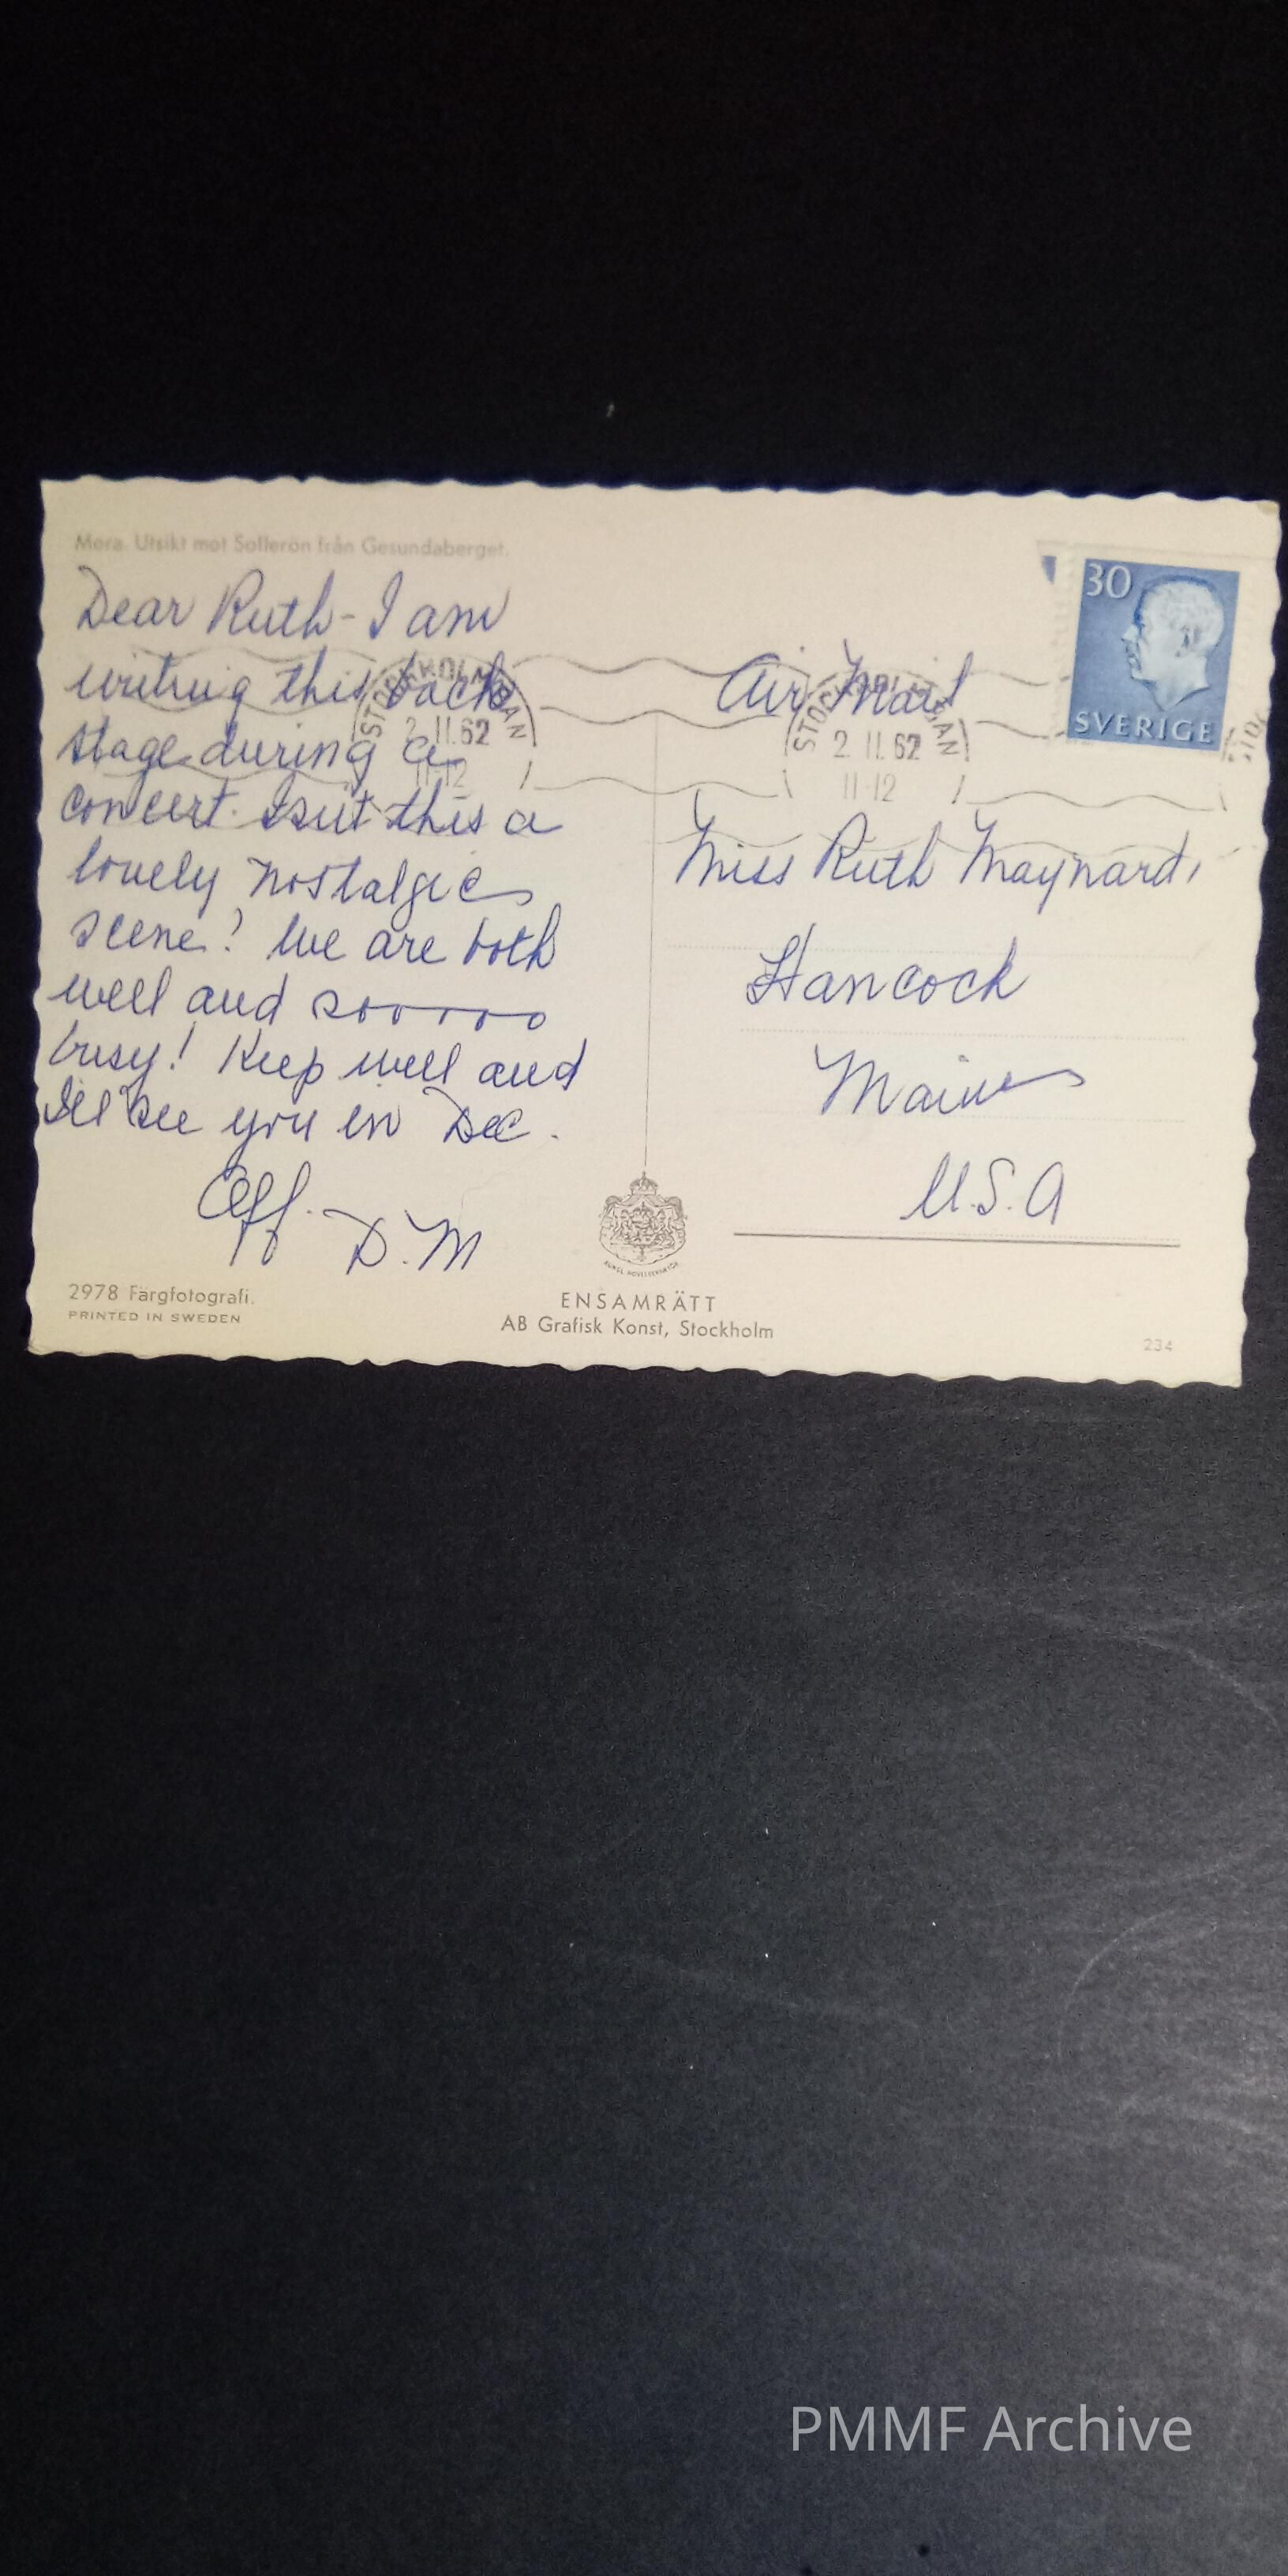 Mora. Utsikt mot Sollerön från Gesundaberget.
Dear Ruth - I am
writing this back
stage during a
concert. Isn't this a
lovely nostalgic
scene? We are both
well and sooooo
busy! Keep well and
I'll see you in Dec.
Aff.
D.M
2978 Färgfotografi.
PRINTED IN SWEDEN
ENSAMRÄTT
AB Grafisk Konst, Stockholm
30
SVERIGE
2 11.62
11-12
2 11.62
11-12
Air Mail
Miss Ruth Maynard,
Hancock
Maine
U.S.A
234
PMMF Archive